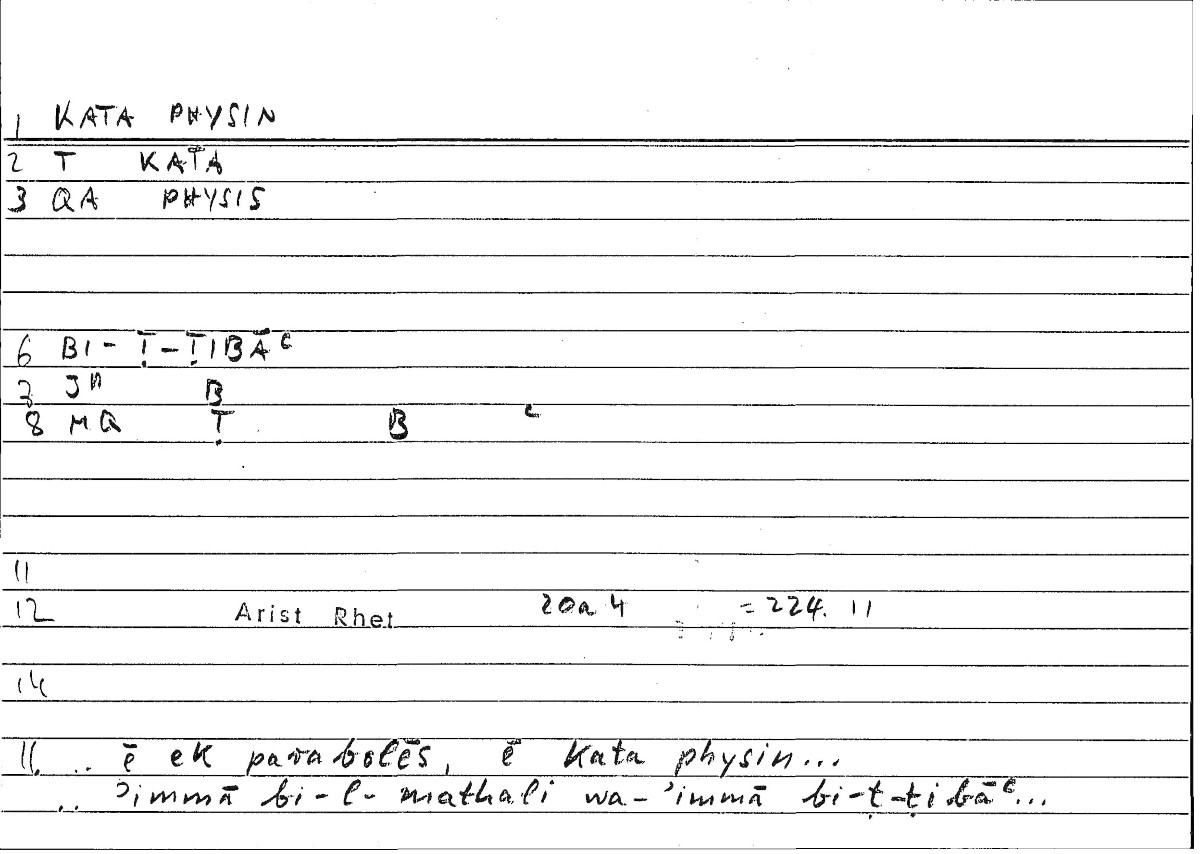 1 KATA PHYSIN
2 T KATA
3 QA PHYSIS
6 BI-Ṭ-ṬIBĀ‘
7 Jn B
8 MQ Ṭ B ‘
11
12 Arist Rhet 20a 4 = 224. 11
14
16 .. ē ek parabolēs, ē kata physin...
.. ’immā bi-l-mathali wa-’immā bi-ṭ-ṭibā‘...